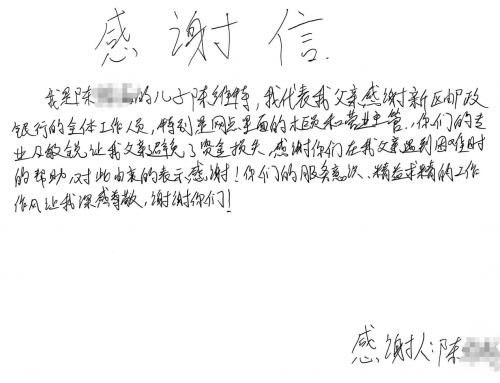 感谢信
我是陈的儿子陈维特，我代表我父亲感谢新区邮政
银行的全体工作人员，特别是网点里面的木颐和营业主管．你们的专
业及敏锐让我父亲避免了资金损失．感谢你们在我父亲遇到困难时
的帮助，对此由衷的表示感谢！你们的服务意识、精益求精的工作
作风让我深感尊敬，谢谢你们！
感谢人：陈